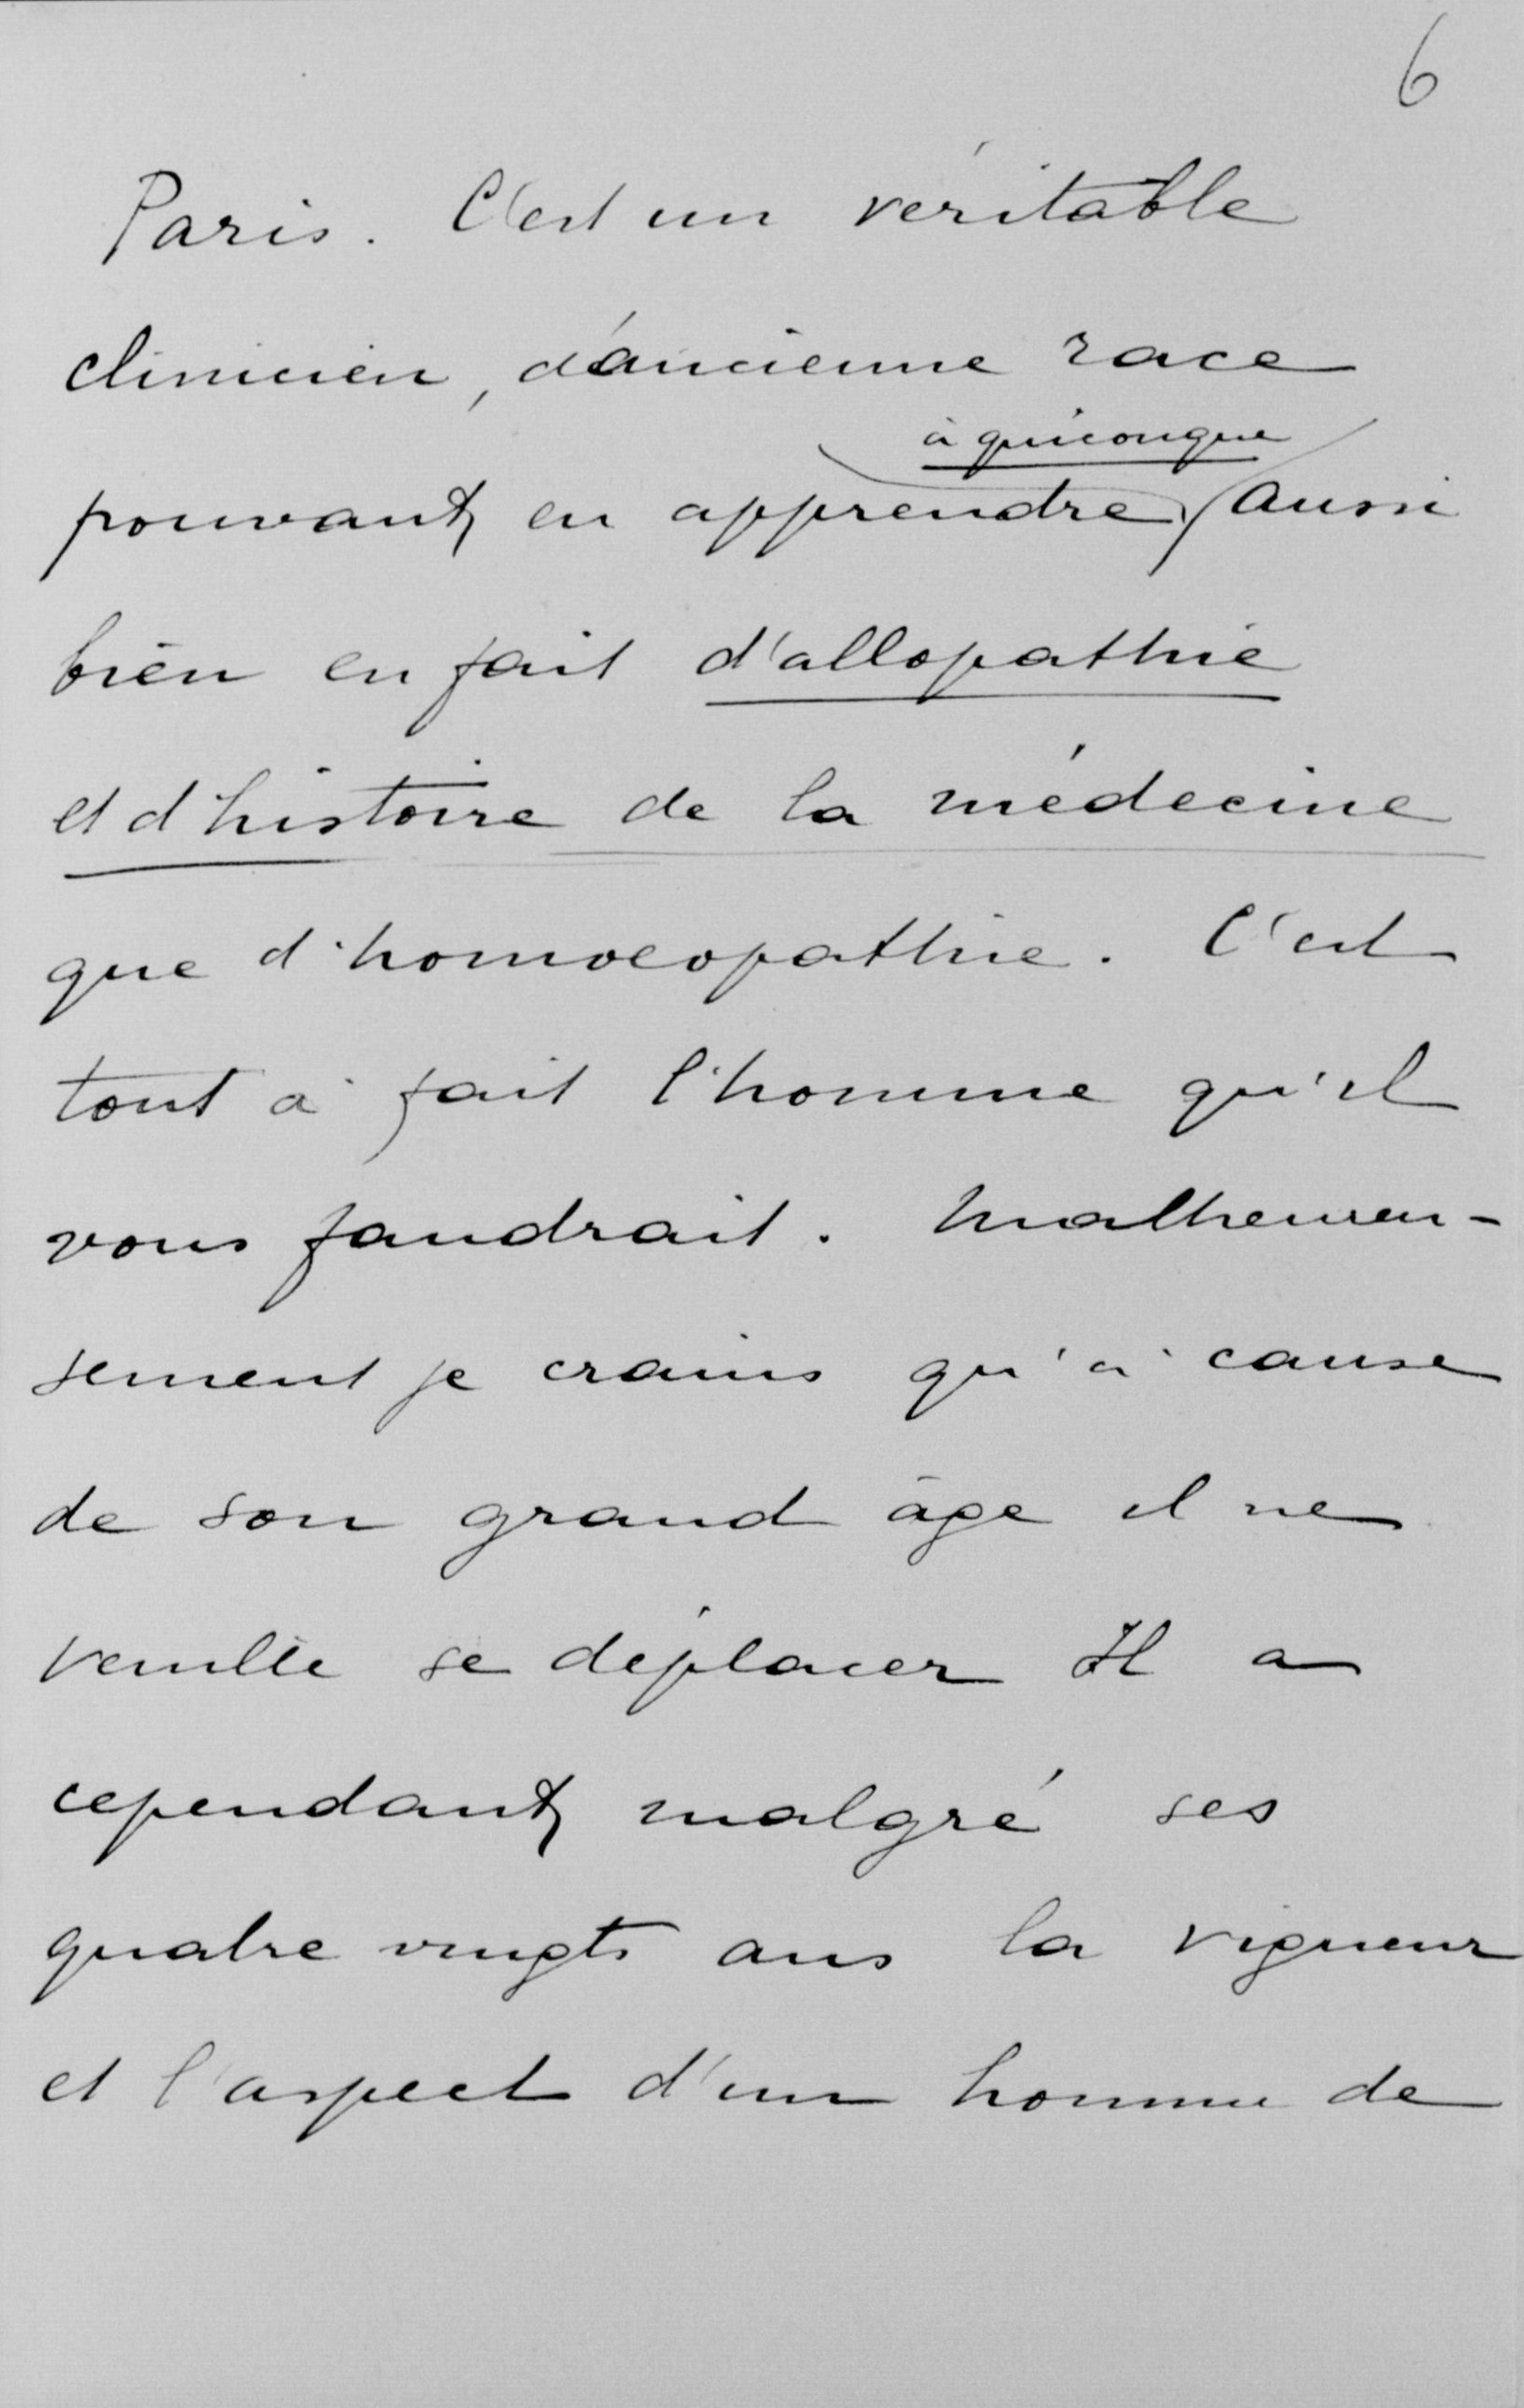 6
Paris. C'est un véritable
clinicien, d'ancienne race
à quiconque
pouvant en apprendre aussi
bien en fait d'allopathie
et d'histoire de la médecine
que d'homoeopathie. C'est
tout à fait l'homme qu'il
vous faudrait. Malheureu-
sement je crains qu'à cause
de son grand âge il ne
veuille se déplacer Il a
cependant malgré ses
quatre vingts ans la vigueur
et l'aspect d'un homme de